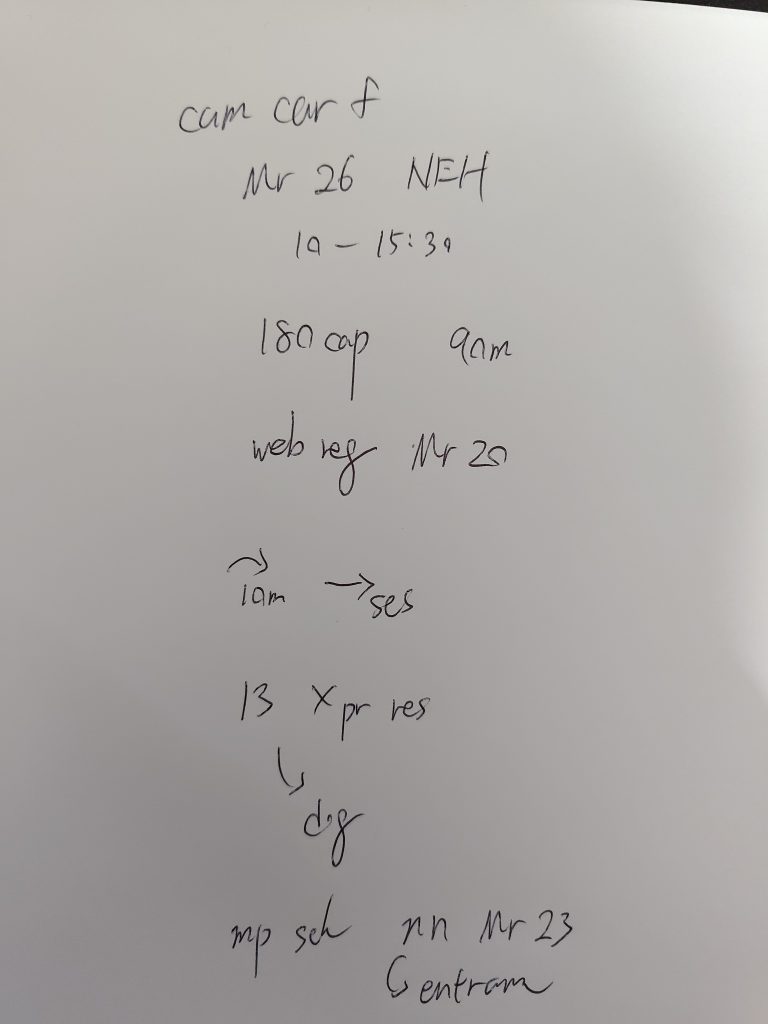 cam car f
Mr 26 NEH
10 – 15:30
180 cap 90m
web reg Mr 20
10m → ses
13 Xpr res
↳ dig
mp sch nn Mr 23
↳ entram